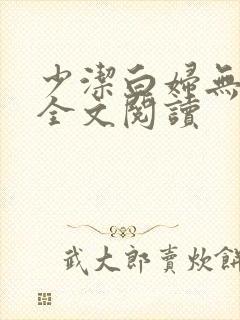 少潔白婦無
全文閱讀
武大郎賣炊餅